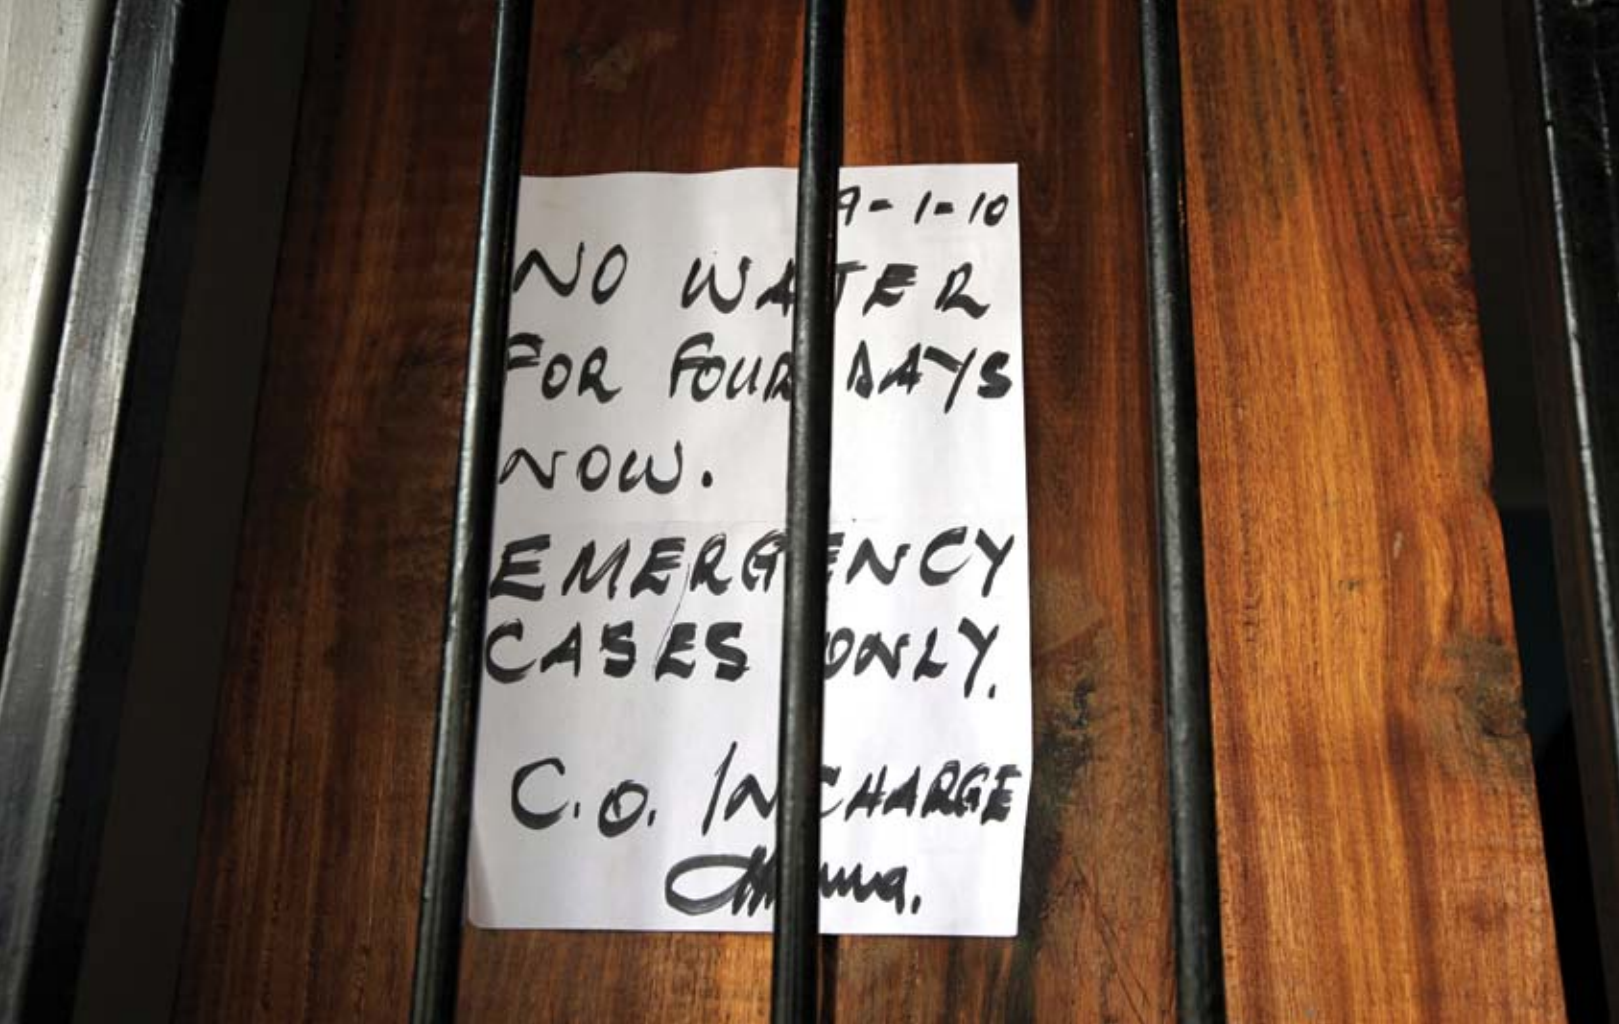 9-1-10
NO WATER
FOR FOUR DAYS
NOW.
EMERGENCY
CASES ONLY.
C.O. INCHARGE